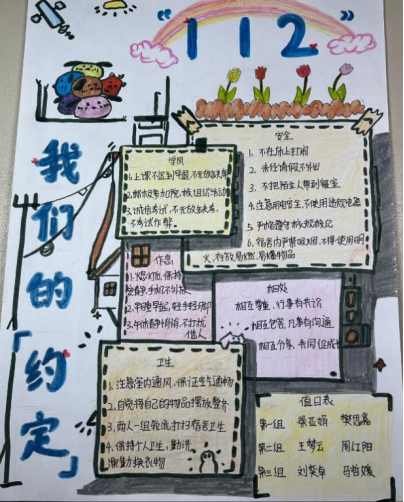 “112”
我们的「约定」
学风
1.上课不迟到早退,不无故缺席
3.诚信考试,不无故缺考,
不考试作弊。
安全
1.不在床上打闹
2.未经请假不外出
3.不把陌生人带到寝室
4.注意用电安全,不使用违规电器
5.严格遵守校规校记
6.宿舍内严禁吸烟,不得使用明
火,存放易燃,易爆物品
作息
1.熄灯后,保持
安静,手机不外放
2.早睡早起,轻手轻脚
3.午休静悄悄,不打扰
他人
相处
相互尊重,行事有共识
相互包容,凡事有沟通
相互分享,共同促成长
卫生
1.注意室内通风,保证空气通畅
2.自觉将自己的物品摆放整齐
3.两人一组轮流打扫宿舍卫生
4.保持个人卫生,勤洗
澡勤换衣物
值日表
第一组 张亚娟 樊思嘉
第二组 王梦云 周红阳
第三组 刘莫卓 马哲媛